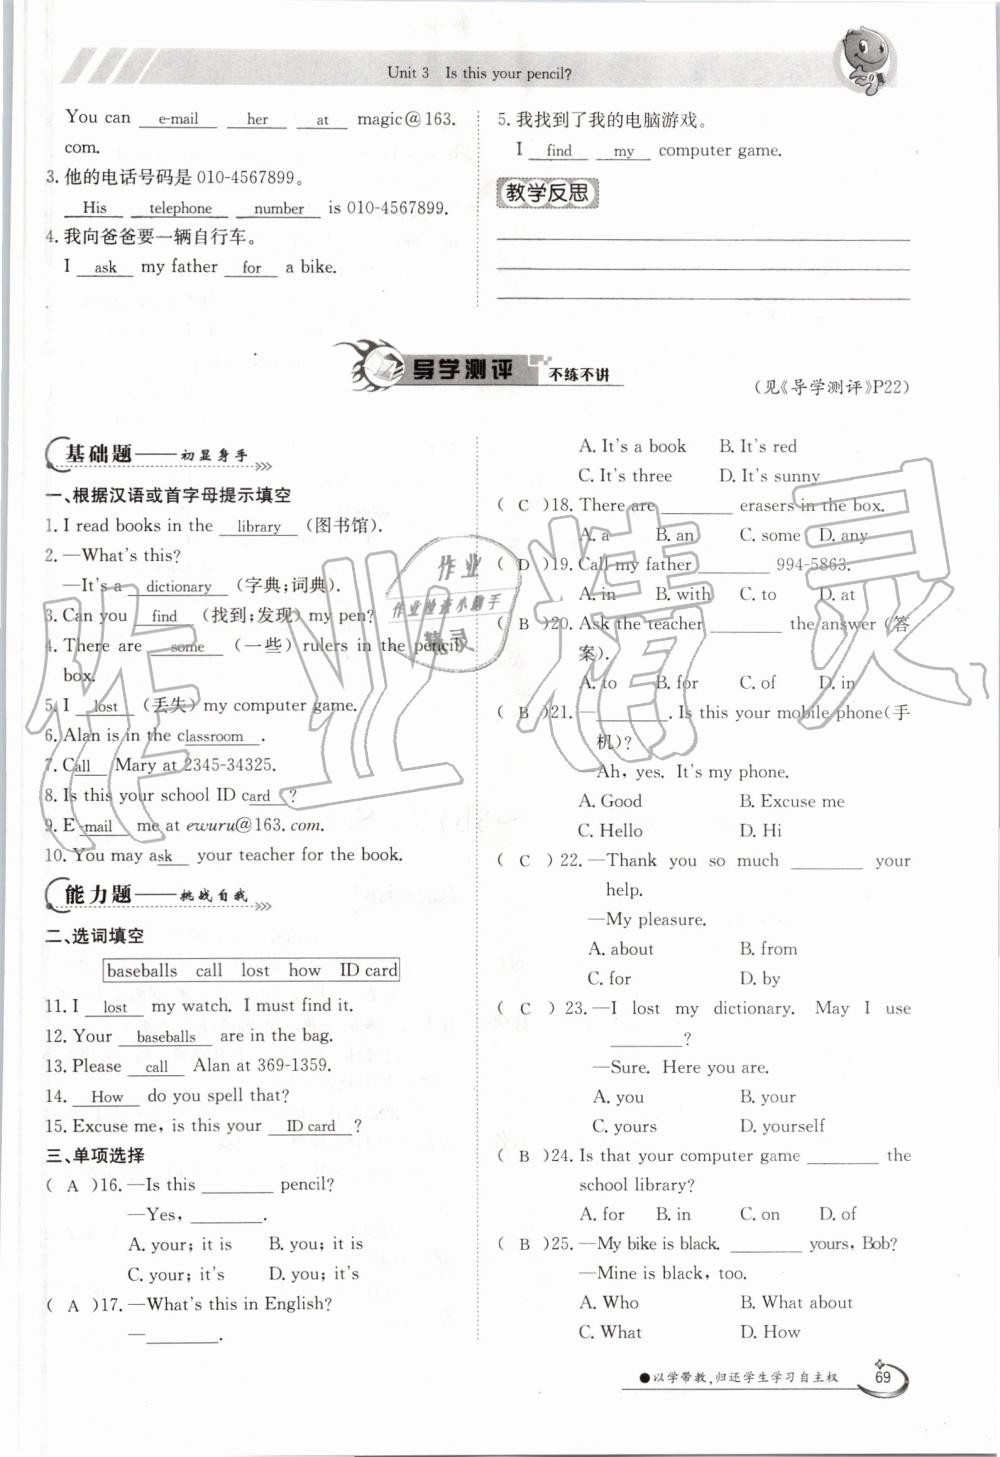 Unit 3 Is this your pencil?
You can e-mail her at magic@163.
com.
3. 他的电话号码是 010-4567899。
His telephone number is 010-4567899.
4. 我向爸爸要一辆自行车。
I ask my father for a bike.
5. 我找到了我的电脑游戏。
I find my computer game.
教学反思
导学测评 不练不讲
(见《导学测评》P22)
基础题——初显身手
一、根据汉语或首字母提示填空
1. I read books in the library (图书馆).
2. —What's this?
—It's a dictionary (字典;词典).
3. Can you find (找到;发现) my pen?
4. There are some (一些) rulers in the pencil
box.
5. I lost (丢失) my computer game.
6. Alan is in the classroom.
7. Call Mary at 2345-34325.
8. Is this your school ID card?
9. E-mail me at ewuru@163.com.
10. You may ask your teacher for the book.
能力题——挑战自我
二、选词填空
baseballs call lost how ID card
11. I lost my watch. I must find it.
12. Your baseballs are in the bag.
13. Please call Alan at 369-1359.
14. How do you spell that?
15. Excuse me, is this your ID card ?
三、单项选择
( A )16. —Is this ________ pencil?
—Yes, ________.
A. your; it is B. you; it is
C. your; it's D. you; it's
( A )17. —What's this in English?
—________.
A. It's a book B. It's red
C. It's three D. It's sunny
( C )18. There are ________ erasers in the box.
A. a B. an C. some D. any
( D )19. Call my father ________ 994-5863.
A. in B. with C. to D. at
( B )20. Ask the teacher ________ the answer (答
案).
A. to B. for C. of D. in
( B )21. —________. Is this your mobile phone(手
机)?
—Ah, yes. It's my phone.
A. Good B. Excuse me
C. Hello D. Hi
( C ) 22. —Thank you so much ________ your
help.
—My pleasure.
A. about B. from
C. for D. by
( C ) 23. —I lost my dictionary. May I use
________?
—Sure. Here you are.
A. you B. your
C. yours D. yourself
( B )24. Is that your computer game ________ the
school library?
A. for B. in C. on D. of
( B )25. —My bike is black. ________ yours, Bob?
—Mine is black, too.
A. Who B. What about
C. What D. How
●以学带教,归还学生学习自主权 69
作业精灵
作业
作业检查小助手
精灵